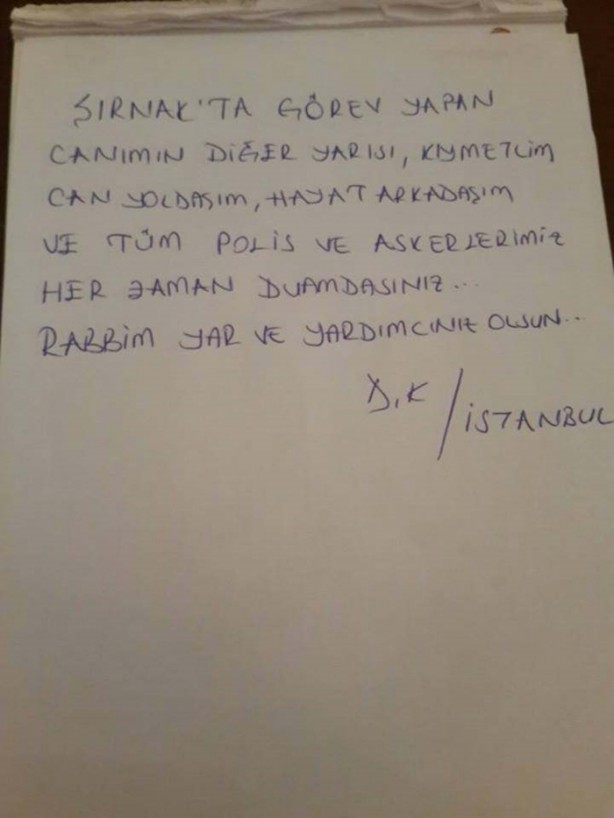 ŞIRNAK'TA GÖREV YAPAN
CANIMIN DİĞER YARISI, KIYMETLİM
CAN YOLDAŞIM, HAYAT ARKADAŞIM
VE TÜM POLİS VE ASKERLERİMİZ
HER ZAMAN DUAMDASINIZ...
RABBİM YAR VE YARDIMCINIZ OLSUN...
D.K / İSTANBUL